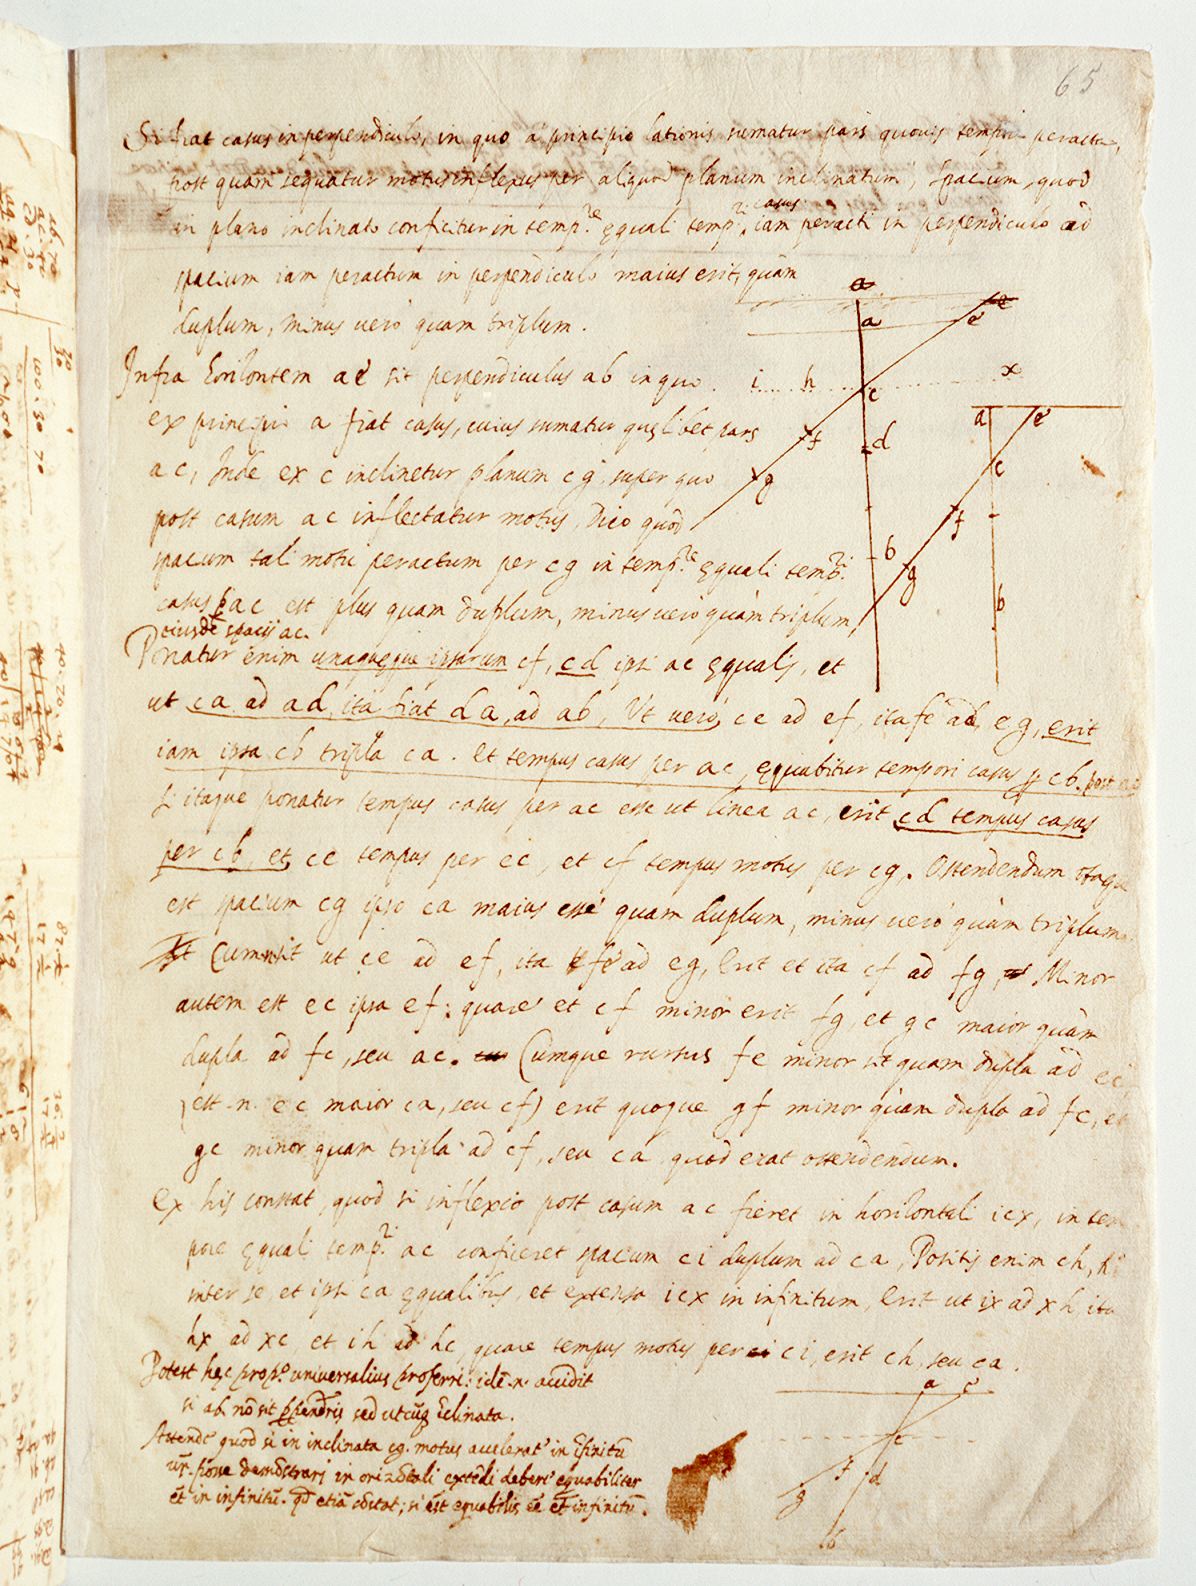 65
Si fiat casus in perpendiculo, in quo a principio lationis sumatur pars quovis tempore peracta,
post quam sequatur motus inflexus per aliquod planum inclinatum, spacium, quod
in plano inclinato conficitur in temp.re equali temp.ri casus iam peracti in perpendiculo ad
spacium iam peractum in perpendiculo maius erit, quam
duplum, minus vero quam triplum.
Infra horizontem ae sit perpendiculus ab in quo
ex principio a fiat casus, cuius sumatur quelibet pars
ac, Inde ex c inclinetur planum cg super quo
post casum ac inflectatur motus, Dico quod
spacium tali motu peractum per cg in temp.re equali temp.ri
casus p ac est plus quam duplum, minus vero quam triplum,
eiusdē spacii ac.
Ponatur enim unaqueque ipsarum cf, cd ipsi ac equalis, et
ut ca ad ad, ita fiat da, ad ab, Ut vero, ce ad ef, ita fe ad eg, erit
iam ipsa cb tripla ca. et tempus casus per ac, equabitur tempori casus p cb. post ac
si itaque ponatur tempus casus per ac esse ut linea ac, erit cd tempus casus
per cb, et ce tempus per ec, et cf tempus motus per cg. Ostendendum itaque
est spacium cg ipso ca maius esse quam duplum, minus vero quam triplum.
Cum sit ut ce ad ef, ita fe ad eg, Erit et ita cf ad fg, Minor
autem est ec ipsa ef: quare et cf minor erit fg, et gc maior quam
dupla ad fc, seu ac. Cumque rursus fe minor sit quam dupla ad ec
(est .n. ec maior ca, seu cf) erit quoque gf minor quam dupla ad fc, et
gc minor quam tripla ad cf, seu ca quod erat ostendendum.
Ex his constat, quod si inflexio post casum ac fieret in horizontali icx, in tem
pore equali temp.ri ac conficeret spacium ci duplum ad ca, Positis enim ch, hi
inter se, et ipsi ca equalibus, et extensa icx in infinitum, Erit ut ix ad xh ita
hx ad xc, et ih ad hc, quare tempus motus per ci, erit ch, seu ca.
Potest hęc prop.o universalius proferri: idē .n. accidit
si ab nō sit ppendris sed utcūq inclinata.
Attende quod si in inclinata cg. motus accelerat in īfinitū
demōstrari in orizōtali extēdi debere equabiliter
et in infinitū. qd etiā cōstat; si est equabilis eē et infinitū.
a
a e
i h c x
f d
g
b
a e
c
f
g
b
a e
c
f d
g
b